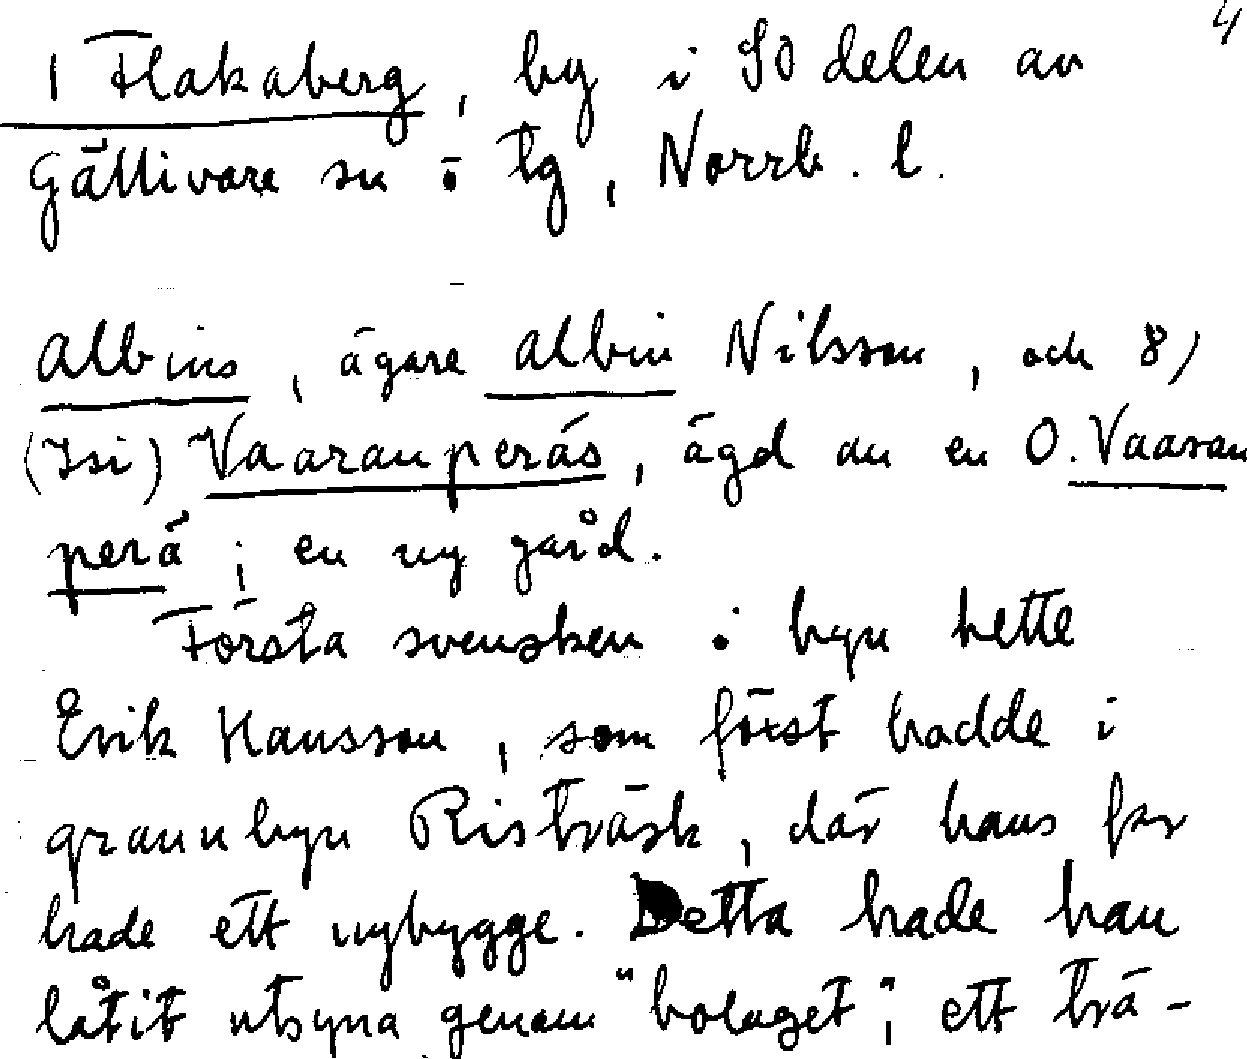 4
1 Flakaberg, by i SO delen av
Gällivare sn o tg, Norrb. l.
Albins, ägare Albin Nilsson, och 8)
(Isi) Vaaranperäs, ägd av en O. Vaaran
perä; en ny gård.
Första svensken i byn hette
Erik Hansson, som först bodde i
grannbyn Risträsk, där hans far
hade ett nybygge. Detta hade han
låtit utsyna genom "bolaget", ett trä-